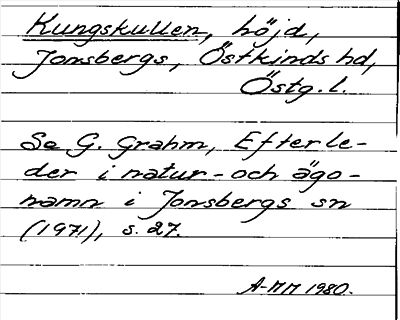 Kungskullen, höjd,
Jonsbergs, Östkinds hd,
Östg. l.
Se G. Grahm, Efterle-
der i natur- och ägo-
namn i Jonsbergs sn
(1971), s. 27.
A-MM 1980.